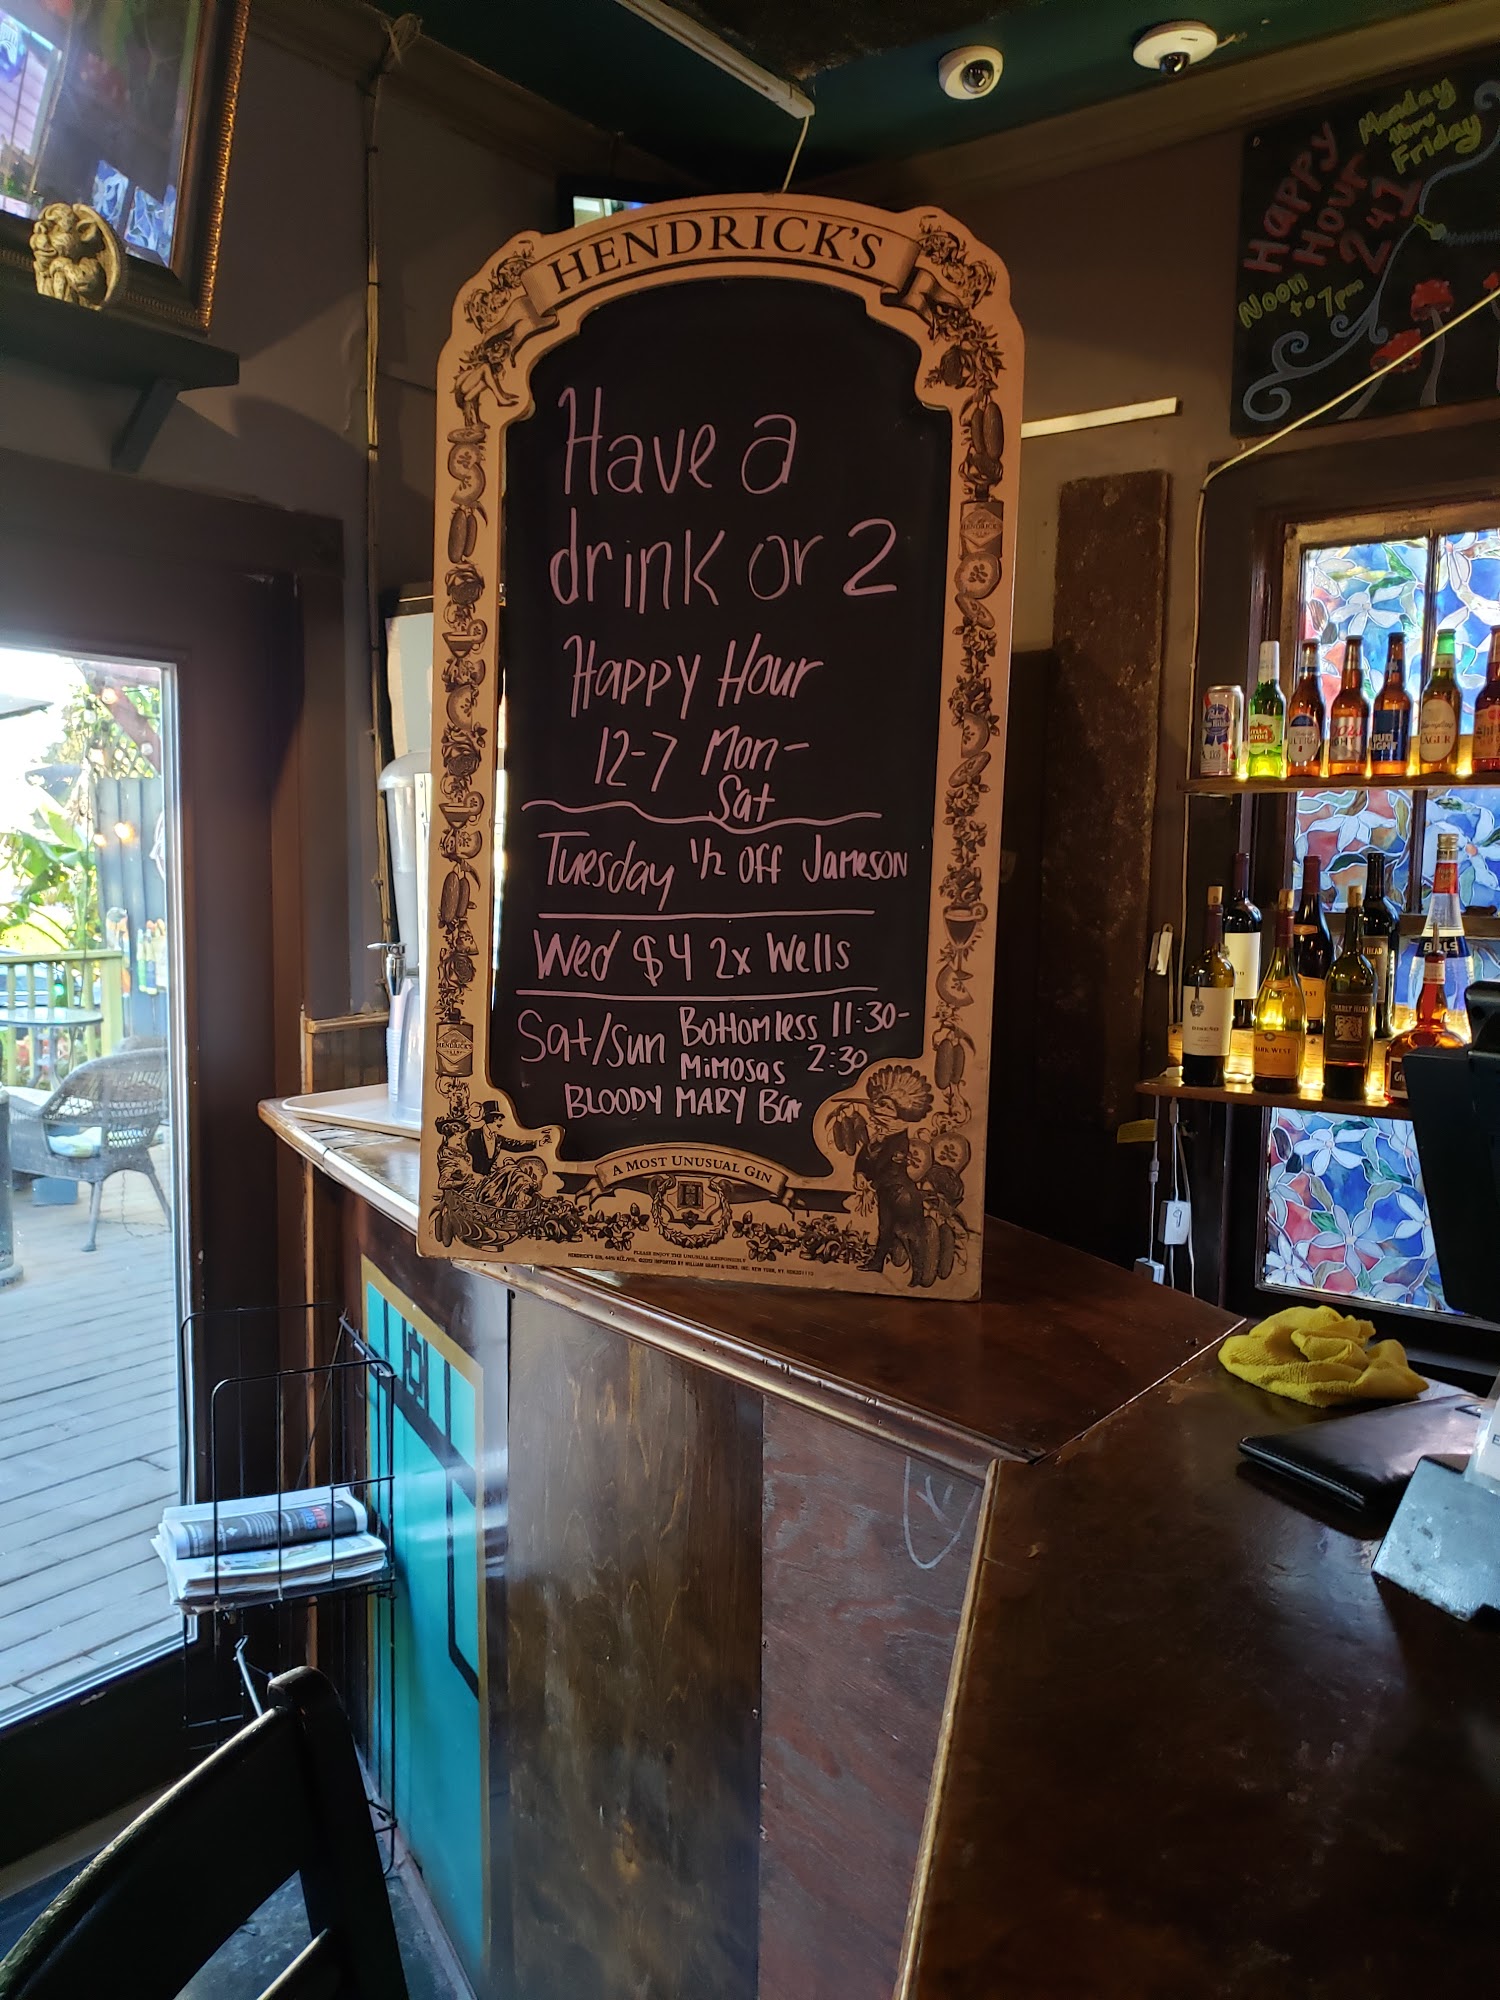 HENDRICK'S
Have a
drink or 2
Happy Hour
12-7 Mon-
Sat
Tuesday 1/2 off Jameson
Wed $4 2x Wells
Sat/Sun Bottomless 11:30-
Mimosas 2:30
BLOODY MARY Bar
A MOST UNUSUAL GIN
H
PLEASE ENJOY THE UNUSUAL RESPONSIBLY
HENDRICK'S
HENDRICK'S
Happy
Hour
2 4 1
Monday
thru
Friday
Noon
to 7pm
BUD
LIGHT
LAGER
BOLS
DARK WEST